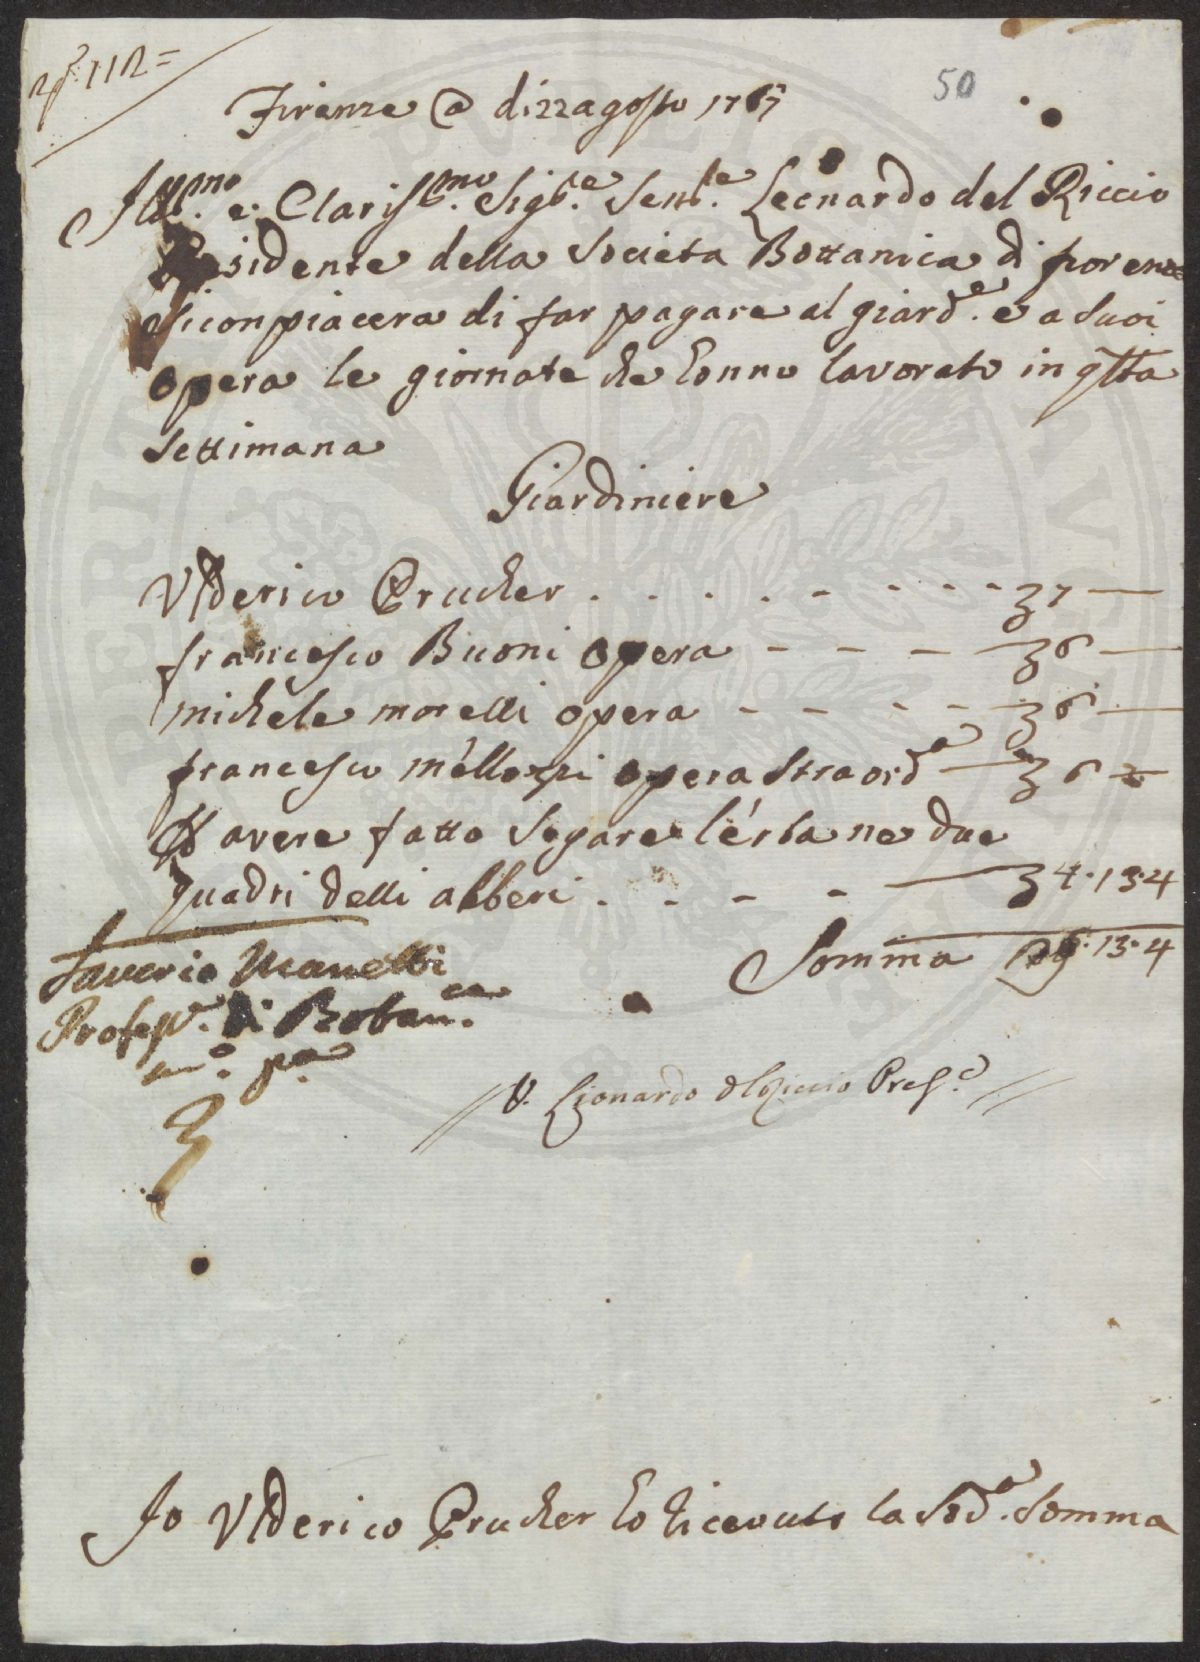 N.º 112=
50
Firenze @ di 22 agosto 1767
Ill.mo e Claris.mo Sig.re Sen.re Leonardo del Riccio
Presidente della Società Bottanica di fiorenze
Si conpiacera di far pagare al giard.e e a Suoi
opera le giornate che honno lavorato in qsta
Settimana
Giardiniere
Ulderico Prucher . . . . - . . . - - 37 —
francesco Buoni opera - - - - 36 —
michele morelli opera - - - - - 36 —
francesco mellozzi opera Straord.a — 36 —
P avere fatto Segare l'érba ne due
quadri delli alberi . . - - — 3 4.13.4
Somma 29.13.4
Saverio Manetti
Profess.e di Botan.ca
m.o p.a
// V. Lionardo del Riccio Pres.e //
Io Ulderico Prucher ho ricevuto la Sod.a Somma